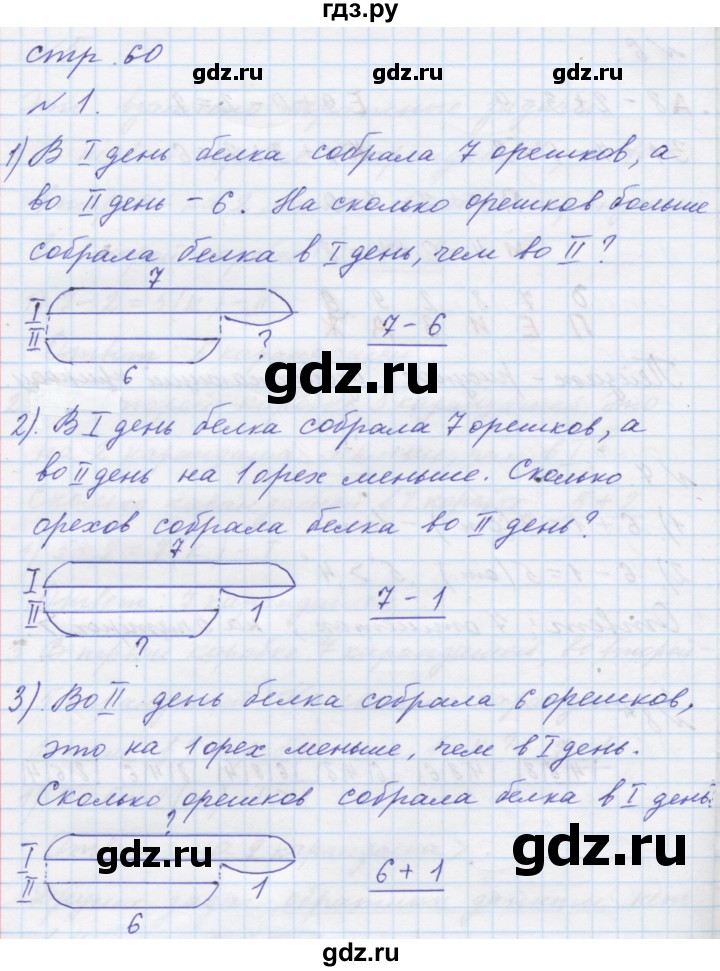 гдз.ру
стр. 60
gdz.ru gdz.ru
№ 1.
1) В I день белка собрала 7 орешков, а
во II день - 6. На сколько орешков больше
собрала белка в I день, чем во II ?
gdz.ru gdz.ru
7
I
II
?
7 - 6
6
gdz.ru
2). В I день белка собрала 7 орешков, а
во II день на 1 орех меньше. Сколько
gdz.ru gdz.ru
орехов собрала белка во II день?
7
I
II
1
7 - 1
?
gdz.ru gdz.ru
3). Во II день белка собрала 6 орешков,
это на 1 орех меньше, чем в I день.
Сколько орешков собрала белка в I день.
?
gdz.ru gdz.ru
I
II
1
6 + 1
6
gdz.ru